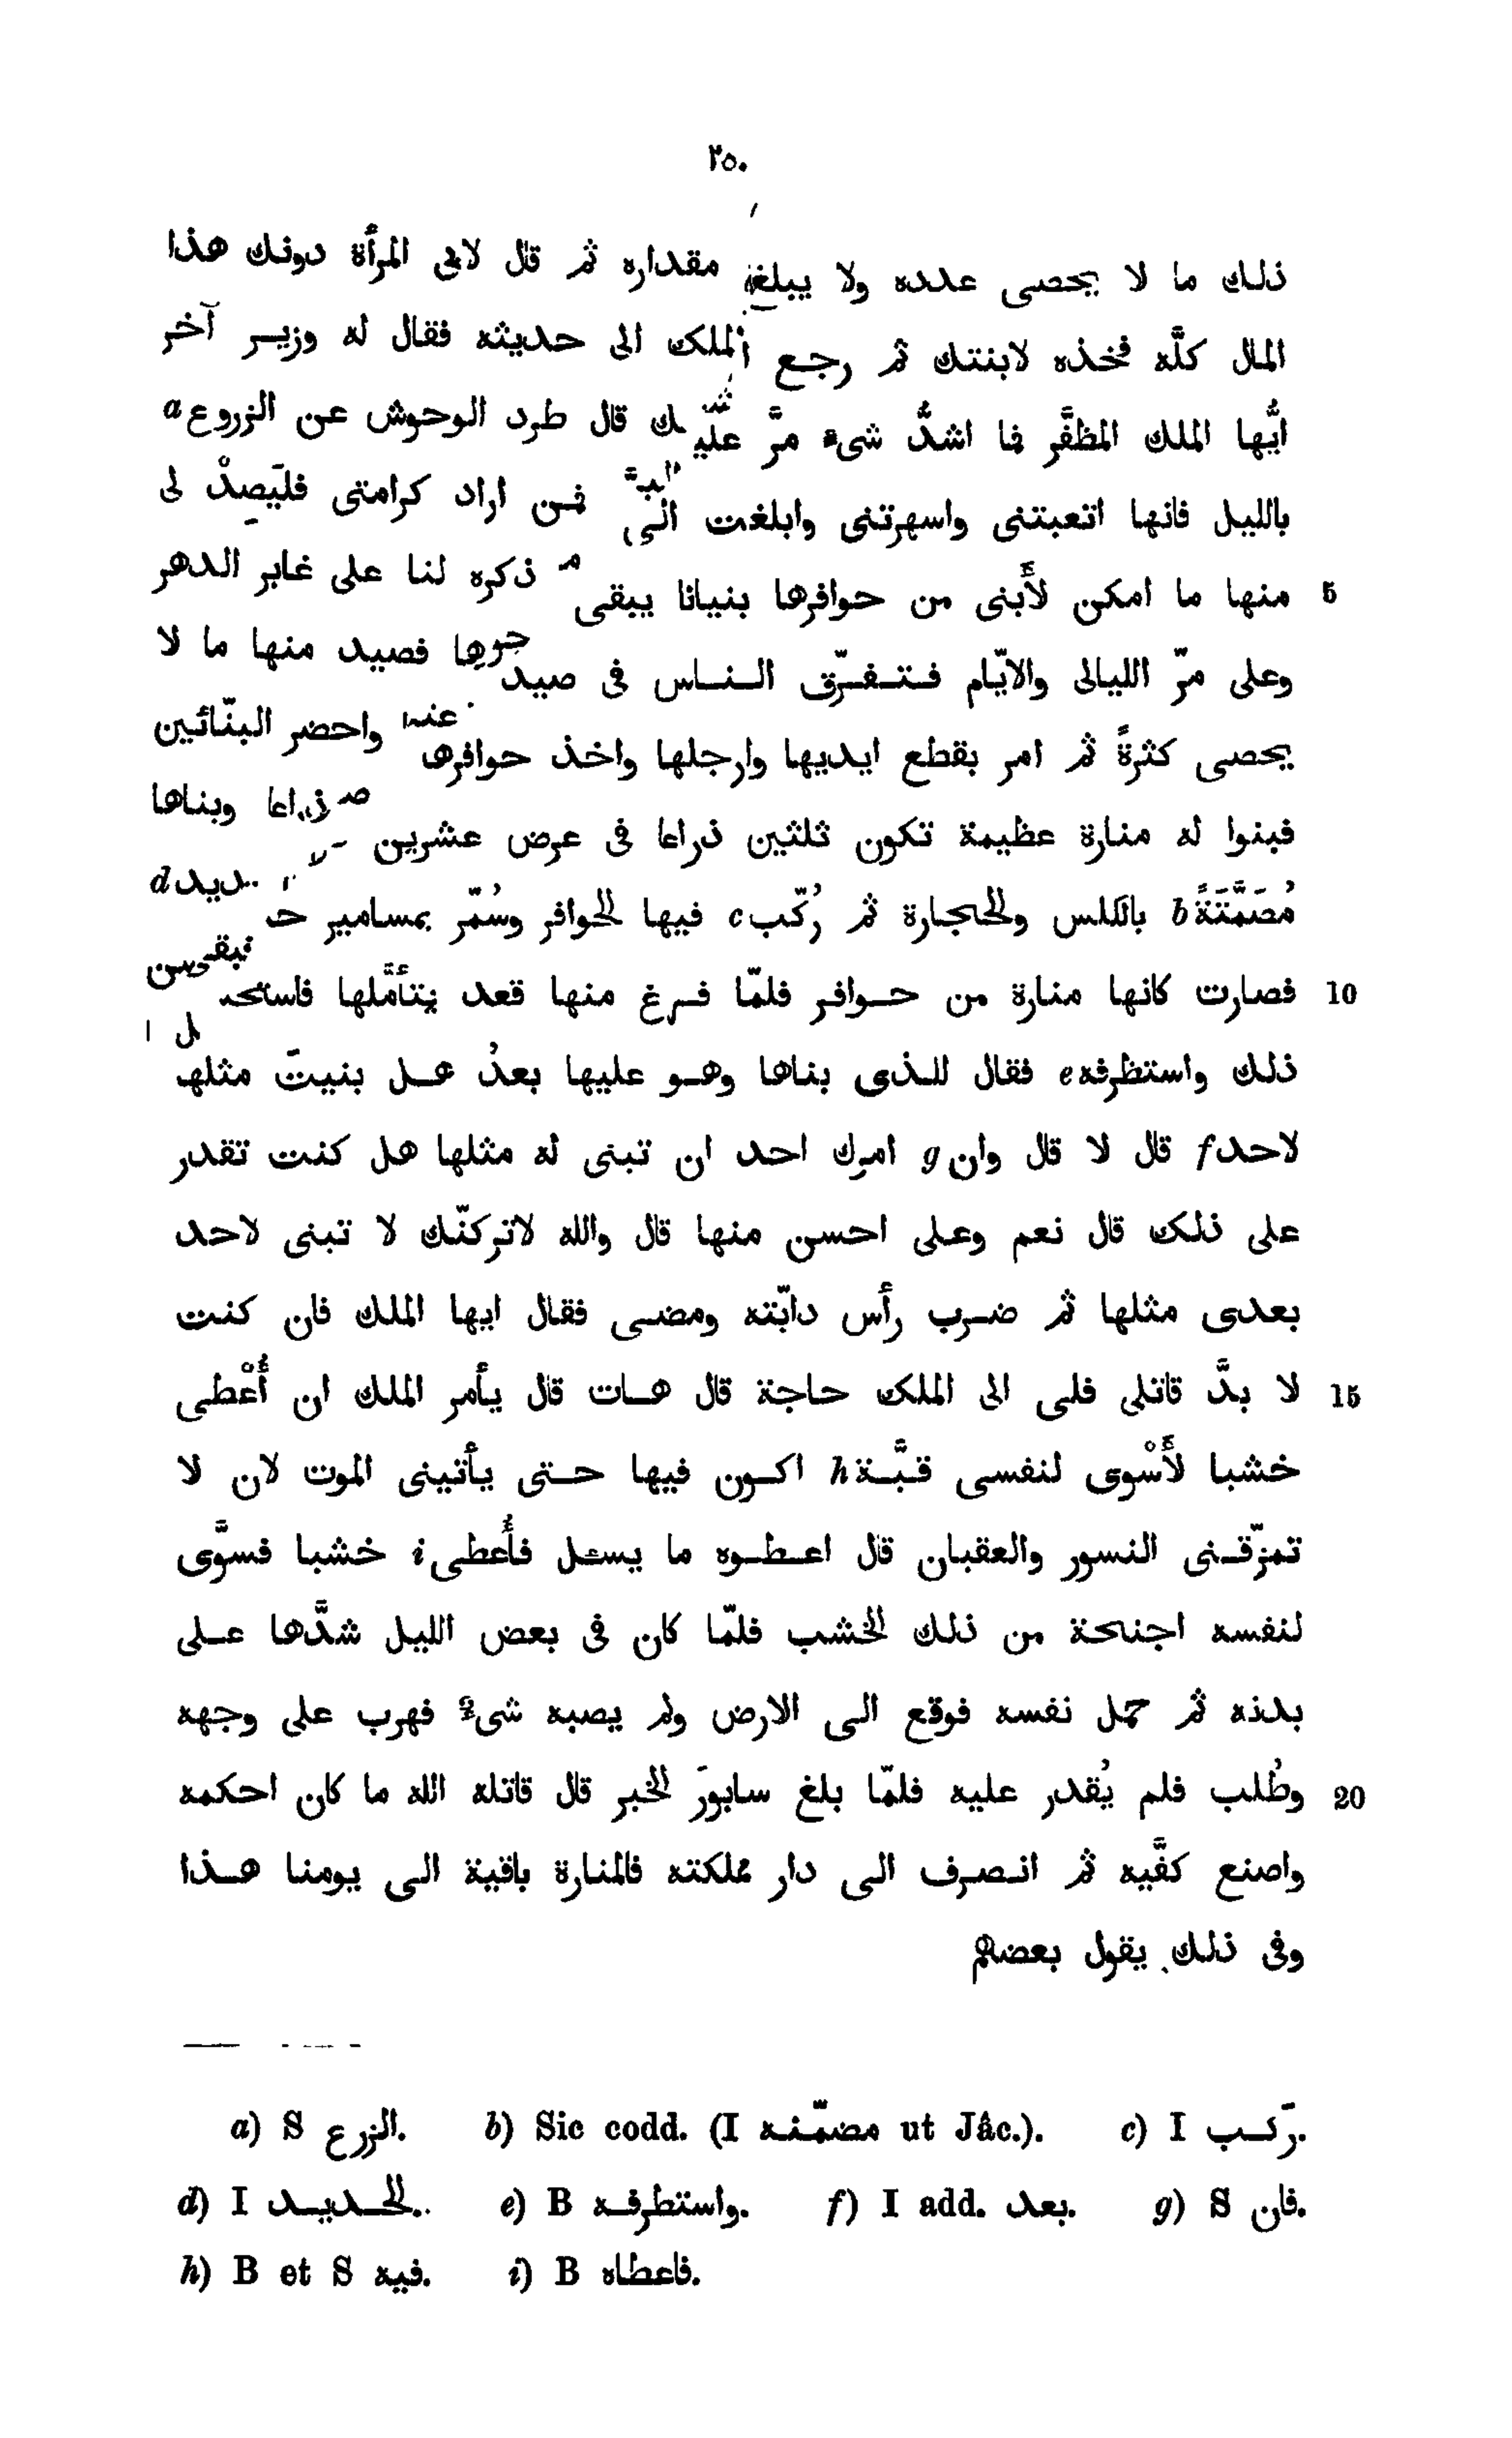 ٢٥٠
ذلك ما لا يحصى عدده ولا يبلغ مقداره ثم قال لابى المرأة دونك هذا
المال كلّه فخذه لابنتك ثم رجع الملك الى حديثه فقال له وزير آخر
ايّها الملك المظفَّر فما اشدُّ شىء مرَّ عليك قال طرد الوحوش عن الزروع a
بالليل فانها اتعبتنى واسهرتنى وابلغت الىَّ فمن اراد كرامتى فليَصِدْ لى
5 منها ما امكن لأَبنى من حوافرها بنيانا يبقى ذكره لنا على غابر الدهر
وعلى مرّ الليالى والايّام فتفرّق الناس فى صيدها فصيد منها ما لا
يحصى كثرةً ثم امر بقطع ايديها وارجلها واخذ حوافرها واحضر البنّائين
فبنوا له منارة عظيمة تكون ثلثين ذراعا فى عرض عشرين ذراعا وبناها
مُصَمَّتَةً b بالكلس والحجارة ثم رُكّب c فيها الحوافر وسُمّر بمسامير حديد d
10 فصارت كانها منارة من حوافر فلمّا فرغ منها قعد يتأمّلها فاستحسن
ذلك واستظرفه e فقال للذى بناها وهو عليها بعدُ هل بنيتَ مثلها
لاحد f قال لا قال وان g امرك احد ان تبنى له مثلها هل كنت تقدر
على ذلك قال نعم وعلى احسن منها قال والله لاتركنّك لا تبنى لاحد
بعدى مثلها ثم ضرب رأس دابّته ومضى فقال ايها الملك فان كنت
15 لا بدَّ قاتلى فلى الى الملك حاجة قال هات قال يأمر الملك ان أُعْطى
خشبا لأُسْوى لنفسى قبَّة h اكون فيها حتى يأتينى الموت لان لا
تمزّقنى النسور والعقبان قال اعطوه ما يسئل فأُعطى i خشبا فسوَّى
لنفسه اجنحة من ذلك الخشب فلمّا كان فى بعض الليل شدَّها على
بدنه ثم حمل نفسه فوقع الى الارض ولم يصبه شىء فهرب على وجهه
20 وطُلب فلم يُقدر عليه فلمّا بلغ سابورَ الخبر قال قاتله الله ما كان احكمه
واصنع كفَّيه ثم انصرف الى دار مملكته فالمنارة باقية الى يومنا هذا
وفى ذلك يقول بعضهم
a) S الزرع. b) Sic codd. (I مضمّنه ut Jâc.). c) I رَكب.
d) I الحديد. e) B واستطرفه. f) I add. بعد. g) S فان.
h) B et S فيه. i) B فاعطاه.